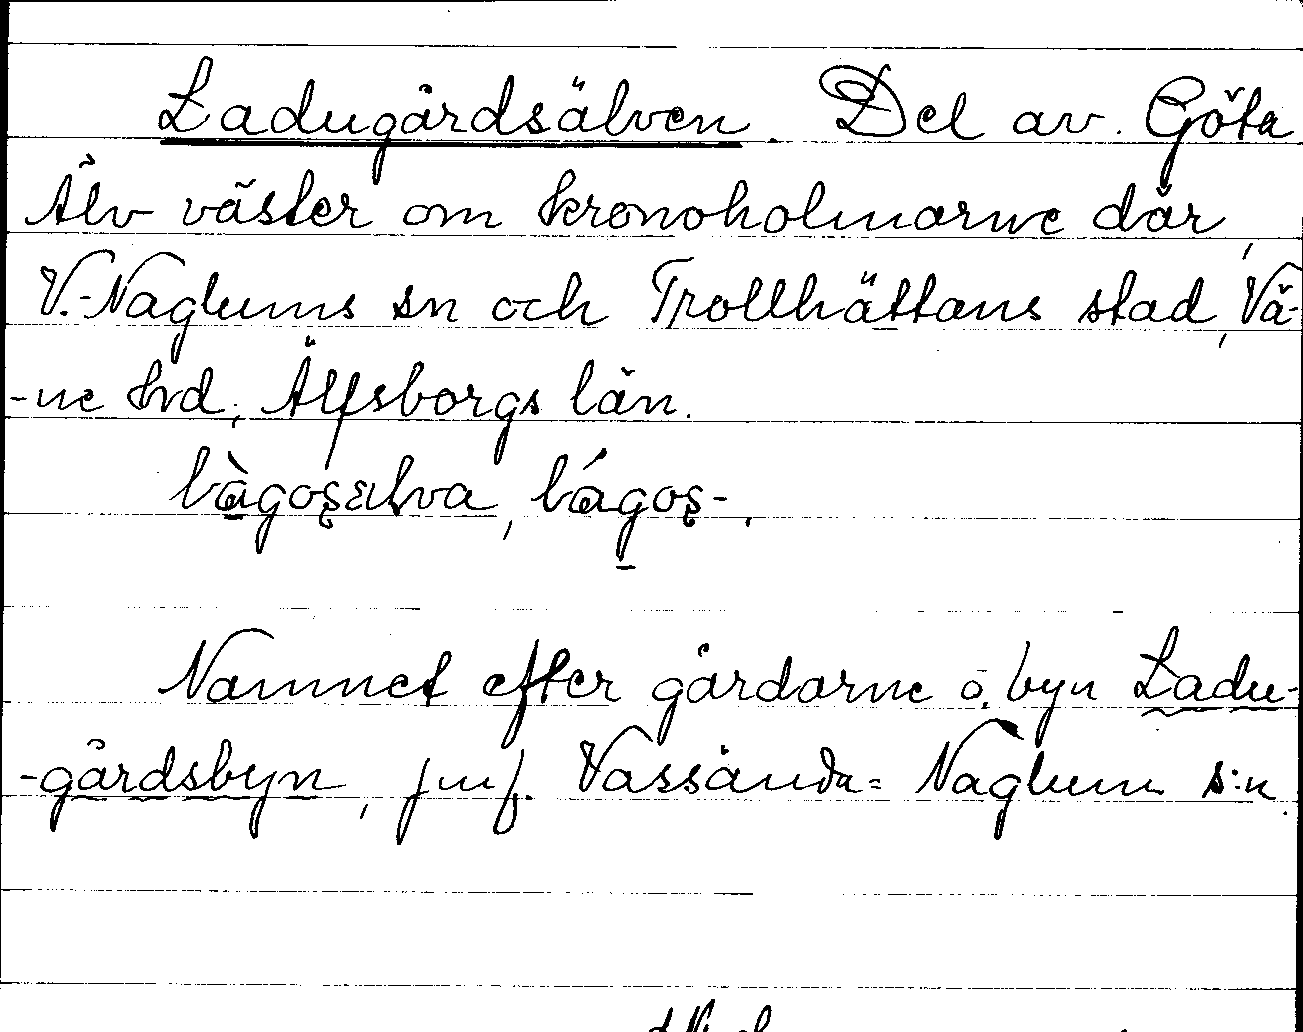 Ladugårdsälven. Del av Göta
Älv väster om Kronoholmarne där,
V.-Naglums sn och Trollhättans stad, Vä-
-ne hd, Älfsborgs län.
làgoşælva, lágoş-.
Namnet efter gårdarne o. byn Ladu-
-gårdsbyn, jmf. Vassända= Naglum s:n.